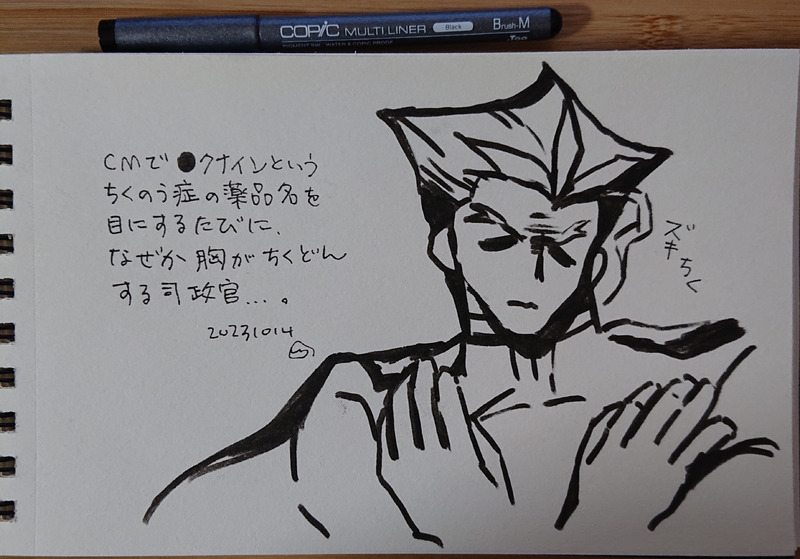 COPIC MULTI LINER Black Brush-M
PIGMENT INK, WATER & COPIC PROOF
.Too
CMで●クナインという
ちくのう症の薬品名を
目にするたびに、
なぜか胸がちくどん
する司政官…。
20231014
ズキちく